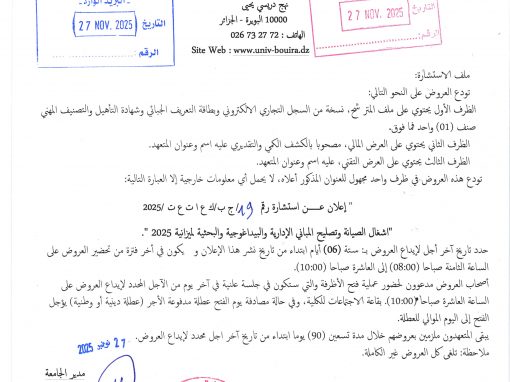 - البريد الوارد -
التاريخ 27 NOV. 2025
الرقم:
نهج دريسي يحيى
10000 البويرة - الجزائر
الهاتف : 72 32 73 026
Site Web : www.univ-bouira.dz
التاريخ 27 NOV. 2025
الرقم:
ملف الاستشارة:
تودع العروض على النحو التالي:
الظرف الأول يحتوي على ملف المترشح، نسخة من السجل التجاري الالكتروني وبطاقة التعريف الجبائي وشهادة التأهيل والتصنيف المهني
صنف (01) واحد فما فوق.
الظرف الثاني يحتوي على العرض المالي، مصحوبا بالكشف الكمي والتقديري عليه اسم وعنوان المتعهد.
الظرف الثالث يحتوي على العرض التقني، عليه اسم وعنوان المتعهد.
تودع هذه العروض في ظرف واحد مجهول للعنوان المذكور أعلاه، لا يحمل أي معلومات خارجية إلا العبارة التالية:
"إعلان عـــن استشارة رقم 19/ج ب/ك ع ا ت ع ت /2025
"اشغال الصيانة وتصليح المباني الإدارية والبيداغوجية والبحثية لميزانية 2025 ".
حدد تاريخ آخر أجل لإيداع العروض بـ: ستة (06) أيام ابتداء من تاريخ نشر هذا الإعلان و يكون في آخر فترة من تحضير العروض على
الساعة الثامنة صباحا (08:00) إلى العاشرة صباحا (10:00).
أصحاب العروض مدعوون لحضور عملية فتح الأظرفة والتي ستكون في جلسة علنية في آخر يوم من الآجل المحدد لإيداع العروض على
الساعة العاشرة صباحا (10:00). بقاعة الاجتماعات للكلية، وفي حالة مصادفة يوم الفتح عطلة مدفوعة الأجر (عطلة دينية أو وطنية) يؤجل
الفتح إلى اليوم الموالي للعطلة.
يبقى المتعهدون ملزمين بعروضهم خلال مدة تسعين (90) يوما ابتداء من تاريخ آخر اجل محدد لإيداع العروض.
ملاحظة: تلغى كل العروض غير الكاملة.
27 نوفمبر 2025
مدير الجامعة